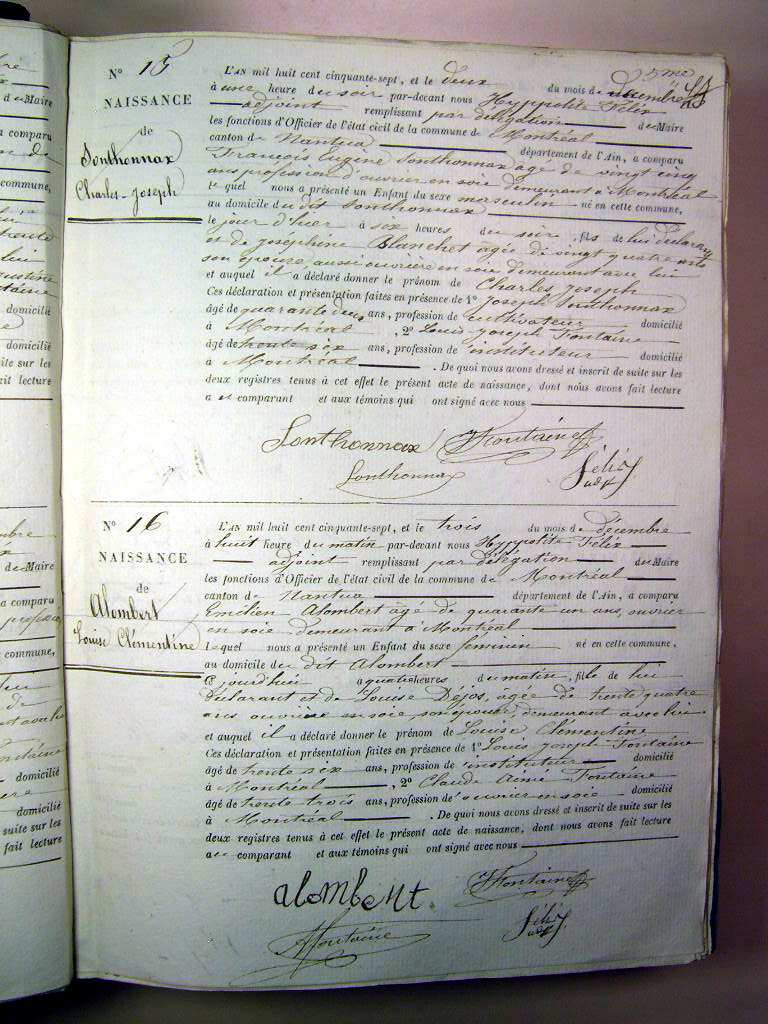 5me
N° 15
NAISSANCE
de
Sonthonnax
Charles-Joseph
L'AN mil huit cent cinquante-sept, et le deux du mois de décembre
à une heure du soir par-devant nous Hyppolite Félix
adjoint remplissant par délégation du Maire
les fonctions d'Officier de l'état civil de la commune de Montréal
canton de Nantua département de l'Ain, a comparu
François Eugène Sonthonnax âgé de vingt cinq
ans profession d'ouvrier en soie demeurant à Montréal
Le quel nous a présenté un Enfant du sexe masculin né en cette commune,
au domicile du dit Sonthonnax
le jour d'hier à six heures du soir, fils de lui déclarant
et de Josephine Blanchet agée de vingt quatre ans
son épouse, aussi ouvrière en soie demeurant avec lui
et auquel il a déclaré donner le prénom de Charles Joseph
Ces déclaration et présentation faites en présence de 1° Joseph Sonthonnax
âgé de quarante deux ans, profession de cultivateur domicilié
à Montréal, 2° Louis-Joseph Fontaine
âgé de trente six ans, profession de instituteur domicilié
à Montréal. De quoi nous avons dressé et inscrit de suite sur les
deux registres tenus à cet effet le présent acte de naissance, dont nous avons fait lecture
a comparant et aux témoins qui ont signé avec nous
Sonthonnax Fontaine
Sonthonnax Félix
adjt
N° 16
NAISSANCE
de
Alombert
Louise Clémentine
L'AN mil huit cent cinquante-sept, et le trois du mois de décembre
à huit heure du matin par-devant nous Hyppolite Félix
adjoint remplissant par délégation du Maire
les fonctions d'Officier de l'état civil de la commune de Montréal
canton de Nantua département de l'Ain, a comparu
Emilien Alombert âgé de quarante un ans, ouvrier
en soie demeurant à Montréal
Le quel nous a présenté un Enfant du sexe féminin né en cette commune,
au domicile du dit Alombert
Ce jourd'hui a quatre heures du matin, fille de lui
déclarant et de Louise Déjos, agée de trente quatre
ans ouvrière en soie, son épouse, demeurant avec lui
et auquel il a déclaré donner le prénom de Louise Clémentine
Ces déclaration et présentation faites en présence de 1° Louis Joseph Fontaine
âgé de trente six ans, profession d'instituteur domicilié
à Montréal, 2° Claude Aimé Fontaine
âgé de trente trois ans, profession d'ouvrier en soie domicilié
à Montréal. De quoi nous avons dressé et inscrit de suite sur les
deux registres tenus à cet effet le présent acte de naissance, dont nous avons fait lecture
au comparant et aux témoins qui ont signé avec nous
alombert. Fontaine
Fontaine Félix
adjt